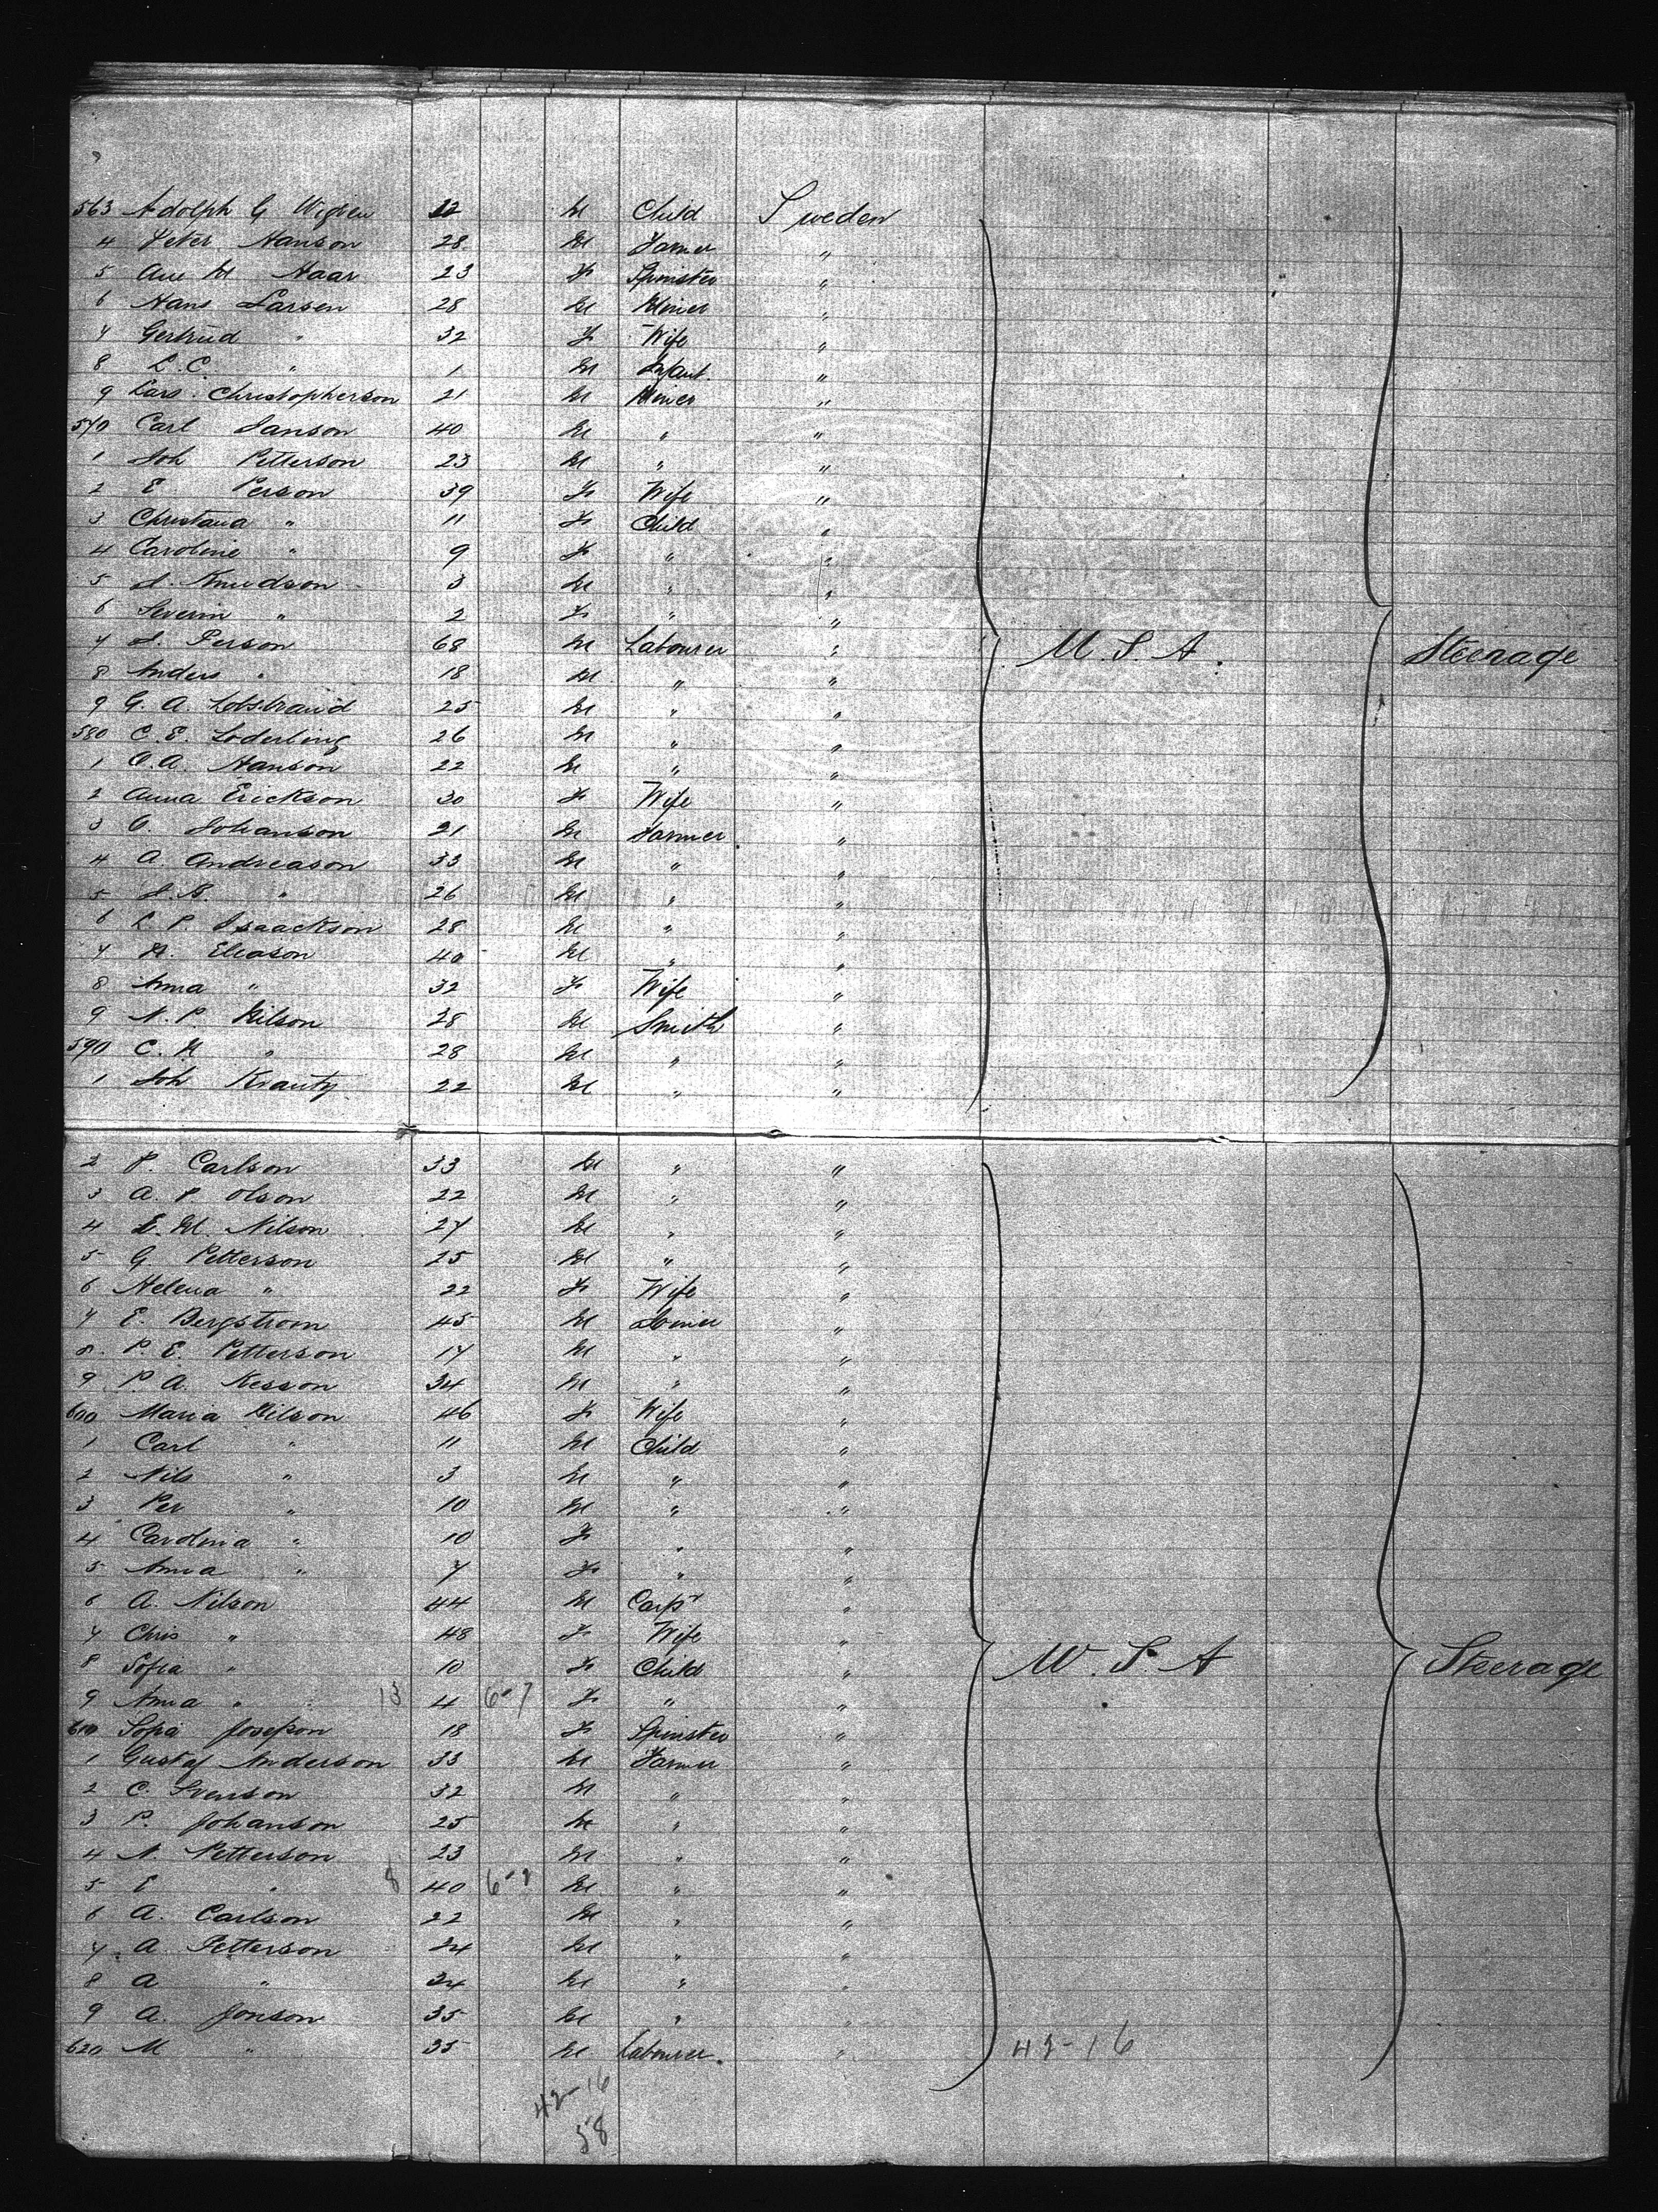 563 Adolph G Wigren 12 M Child Sweden
4 Peter Hanson 28 M Farmer "
5 Ane M Haar 23 F Spinster "
6 Hans Larsen 28 M Miner "
7 Gertrud " 32 F Wife "
8 L.C. " 1 M Infant. "
9 Lars Christopherson 21 M Miner "
570 Carl Janson 40 M " "
1 Joh Petterson 23 M " "
2 E Person 39 F Wife "
3 Christana " 11 F Child "
4 Caroline " 9 F " "
5 J. Knudson 3 M " "
6 Severin " 2 F " "
7 J. Person 68 M Labourer " U.S.A. Steerage
8 Anders " 18 M " "
9 G. A. 25 M " "
580 C. E. Soderling 26 M " "
1 O.A. Hanson 22 M " "
2 Anna Erickson 30 F Wife "
3 O. Johanson 21 M Farmer "
4 A. Andreason 33 M " "
5 " 26 M " "
6 L P. Isaackson 28 M " "
7 Eliason 40 M " "
8 Anna " 32 F Wife "
9 N. P. Nilson 28 M Smith "
590 C. " 28 M " "
1 Joh Krantz 22 M " "
2 P. Carlson 33 M " "
3 A. P Olson 22 M " "
4 E. M. Nilson 27 M " "
5 G Petterson 25 M " "
6 Helena " 22 F Wife "
7 E. Bergstrom 45 M Joiner "
8 P. E. Petterson 17 M " "
9 P. A. Kesson 34 M " "
600 Maria Nilson 46 F Wife "
1 Carl " 11 M Child "
2 Nils " 3 M " "
3 Per " 10 M " "
4 Carolina " 10 F " "
5 Anna " 7 F " "
6 A. Nilson 44 M Carpr "
7 Chris " 48 F Wife "
8 Sofia " 10 F Child " U.S.A Steerage
9 Anna " 13 4 6-7 F " "
610 Sofia Josefson 18 F Spinster "
1 Gustaf Anderson 33 M Farmer "
2 C. Svenson 32 M " "
3 P. Johanson 25 M " "
4 N. Petterson 23 M " "
5 E " 8 40 M " "
6 A. Carlson 22 M " "
7 A Petterson 24 M " "
8 A " 34 M " "
9 A. Jonson 35 M " "
620 M " 35 M Labourer. " 42-16
42-16
58